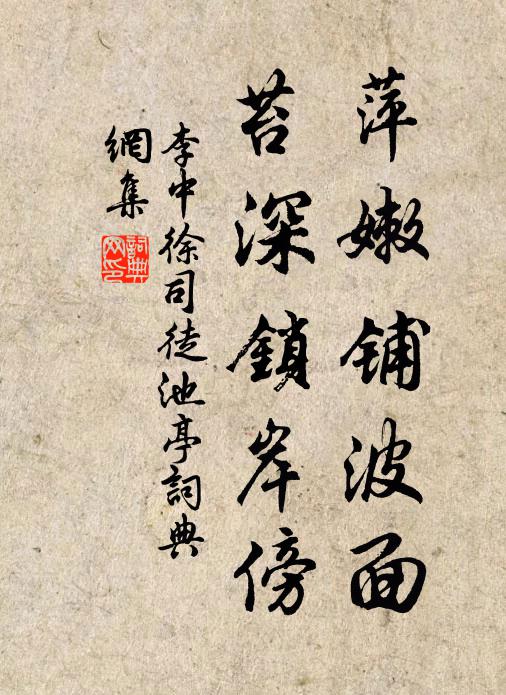 萍嫩铺波面
苔深鎖岸傍
李中徐司徒池亭詞典
網集
詞典網印